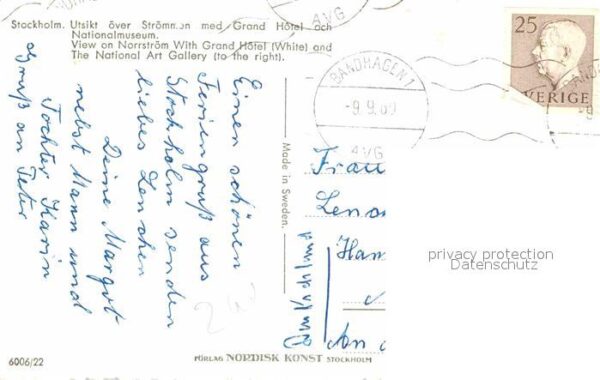 Stockholm. Utsikt över Strömmen med Grand Hôtel och
Nationalmuseum.
View on Norrström With Grand Hôtel (White) and
The National Art Gallery (to the right).
Einen schönen
Feriengruß aus
Stockholm senden
liebes Lenchen
Deine Margot
nebst Mann und
Tochter Karin
Gruß an Peter
Made in Sweden.
25
SVERIGE
BANDHAGEN 1
-9.9.60
AVG
AVG
Frau
Len
Ham
An
privacy protection
Datenschutz
6006/22
FÖRLAG NORDISK KONST STOCKHOLM